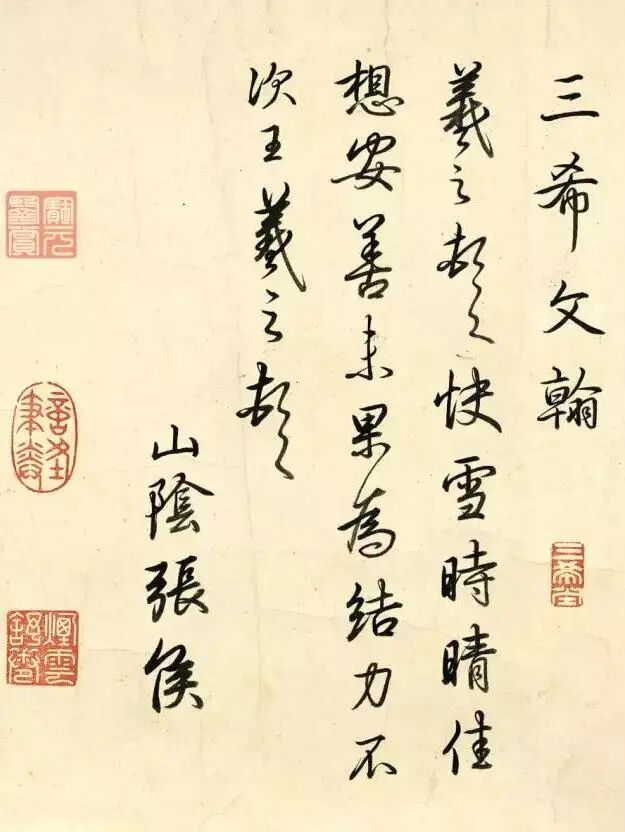 三希文翰
三希堂
羲之頓首快雪時晴佳
想安善未果為結力不
次王羲之頓首
山陰張侯
煙雲舒卷